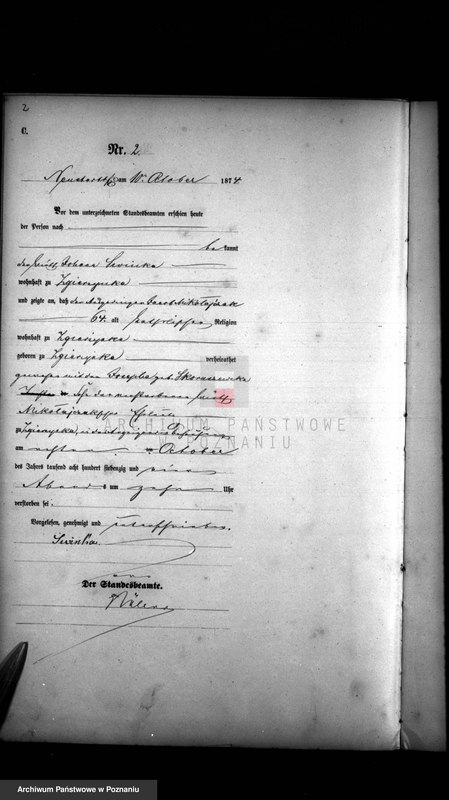 2
C.
Nr. 2
am 10. October 1874
Vor dem unterzeichneten Standesbeamten erschien heute
der Person nach
be kannt
der Johann Swinka
wohnhaft zu Zgierzynka
und zeigte an, daß der Jacob Mikolajczak
64. alt katholischer Religion
wohnhaft zu Zgierzynka
geboren zu Zgierzynka verheirathet
gewesen mit der Josepha geb. Skoraszewska
der verstorbenen
Zgierzynka, in
am achten October
des Jahrs tausend acht hundert siebenzig und vier
Abends um zehn Uhr
verstorben sei.
Vorgelesen, genehmigt und unterschrieben.
Swinka.
Der Standesbeamte.
ARCHIWUM PAŃSTWOWE
W POZNANIU
Archiwum Państwowe w Poznaniu